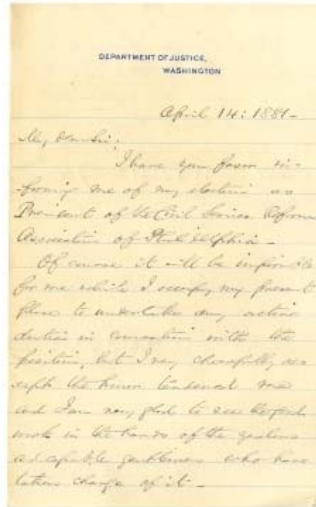 DEPARTMENT OF JUSTICE,
WASHINGTON
April 14: 1881-
My Dear Sir:
I have your favor in-
forming me of my election as
President of the Civil Service Reform
Association of Philadelphia -
Of course it will be impossible
for me while I occupy my present
place to undertake any active
duties in connection with the
position, but I very cheerfully ac-
cept the honor tendered me
and I am very glad to see the good
work in the hands of the zealous
and capable gentlemen who have
taken charge of it -